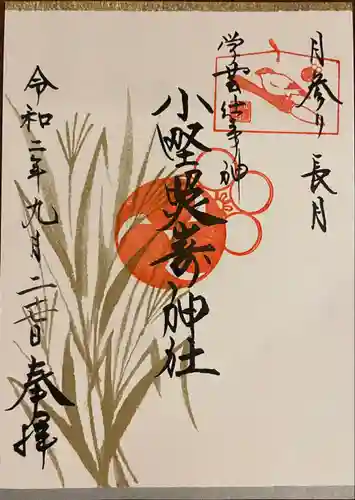 月参り 長月
学藝仕事神
小野照嵜神社
令和二年九月二 日 奉拝